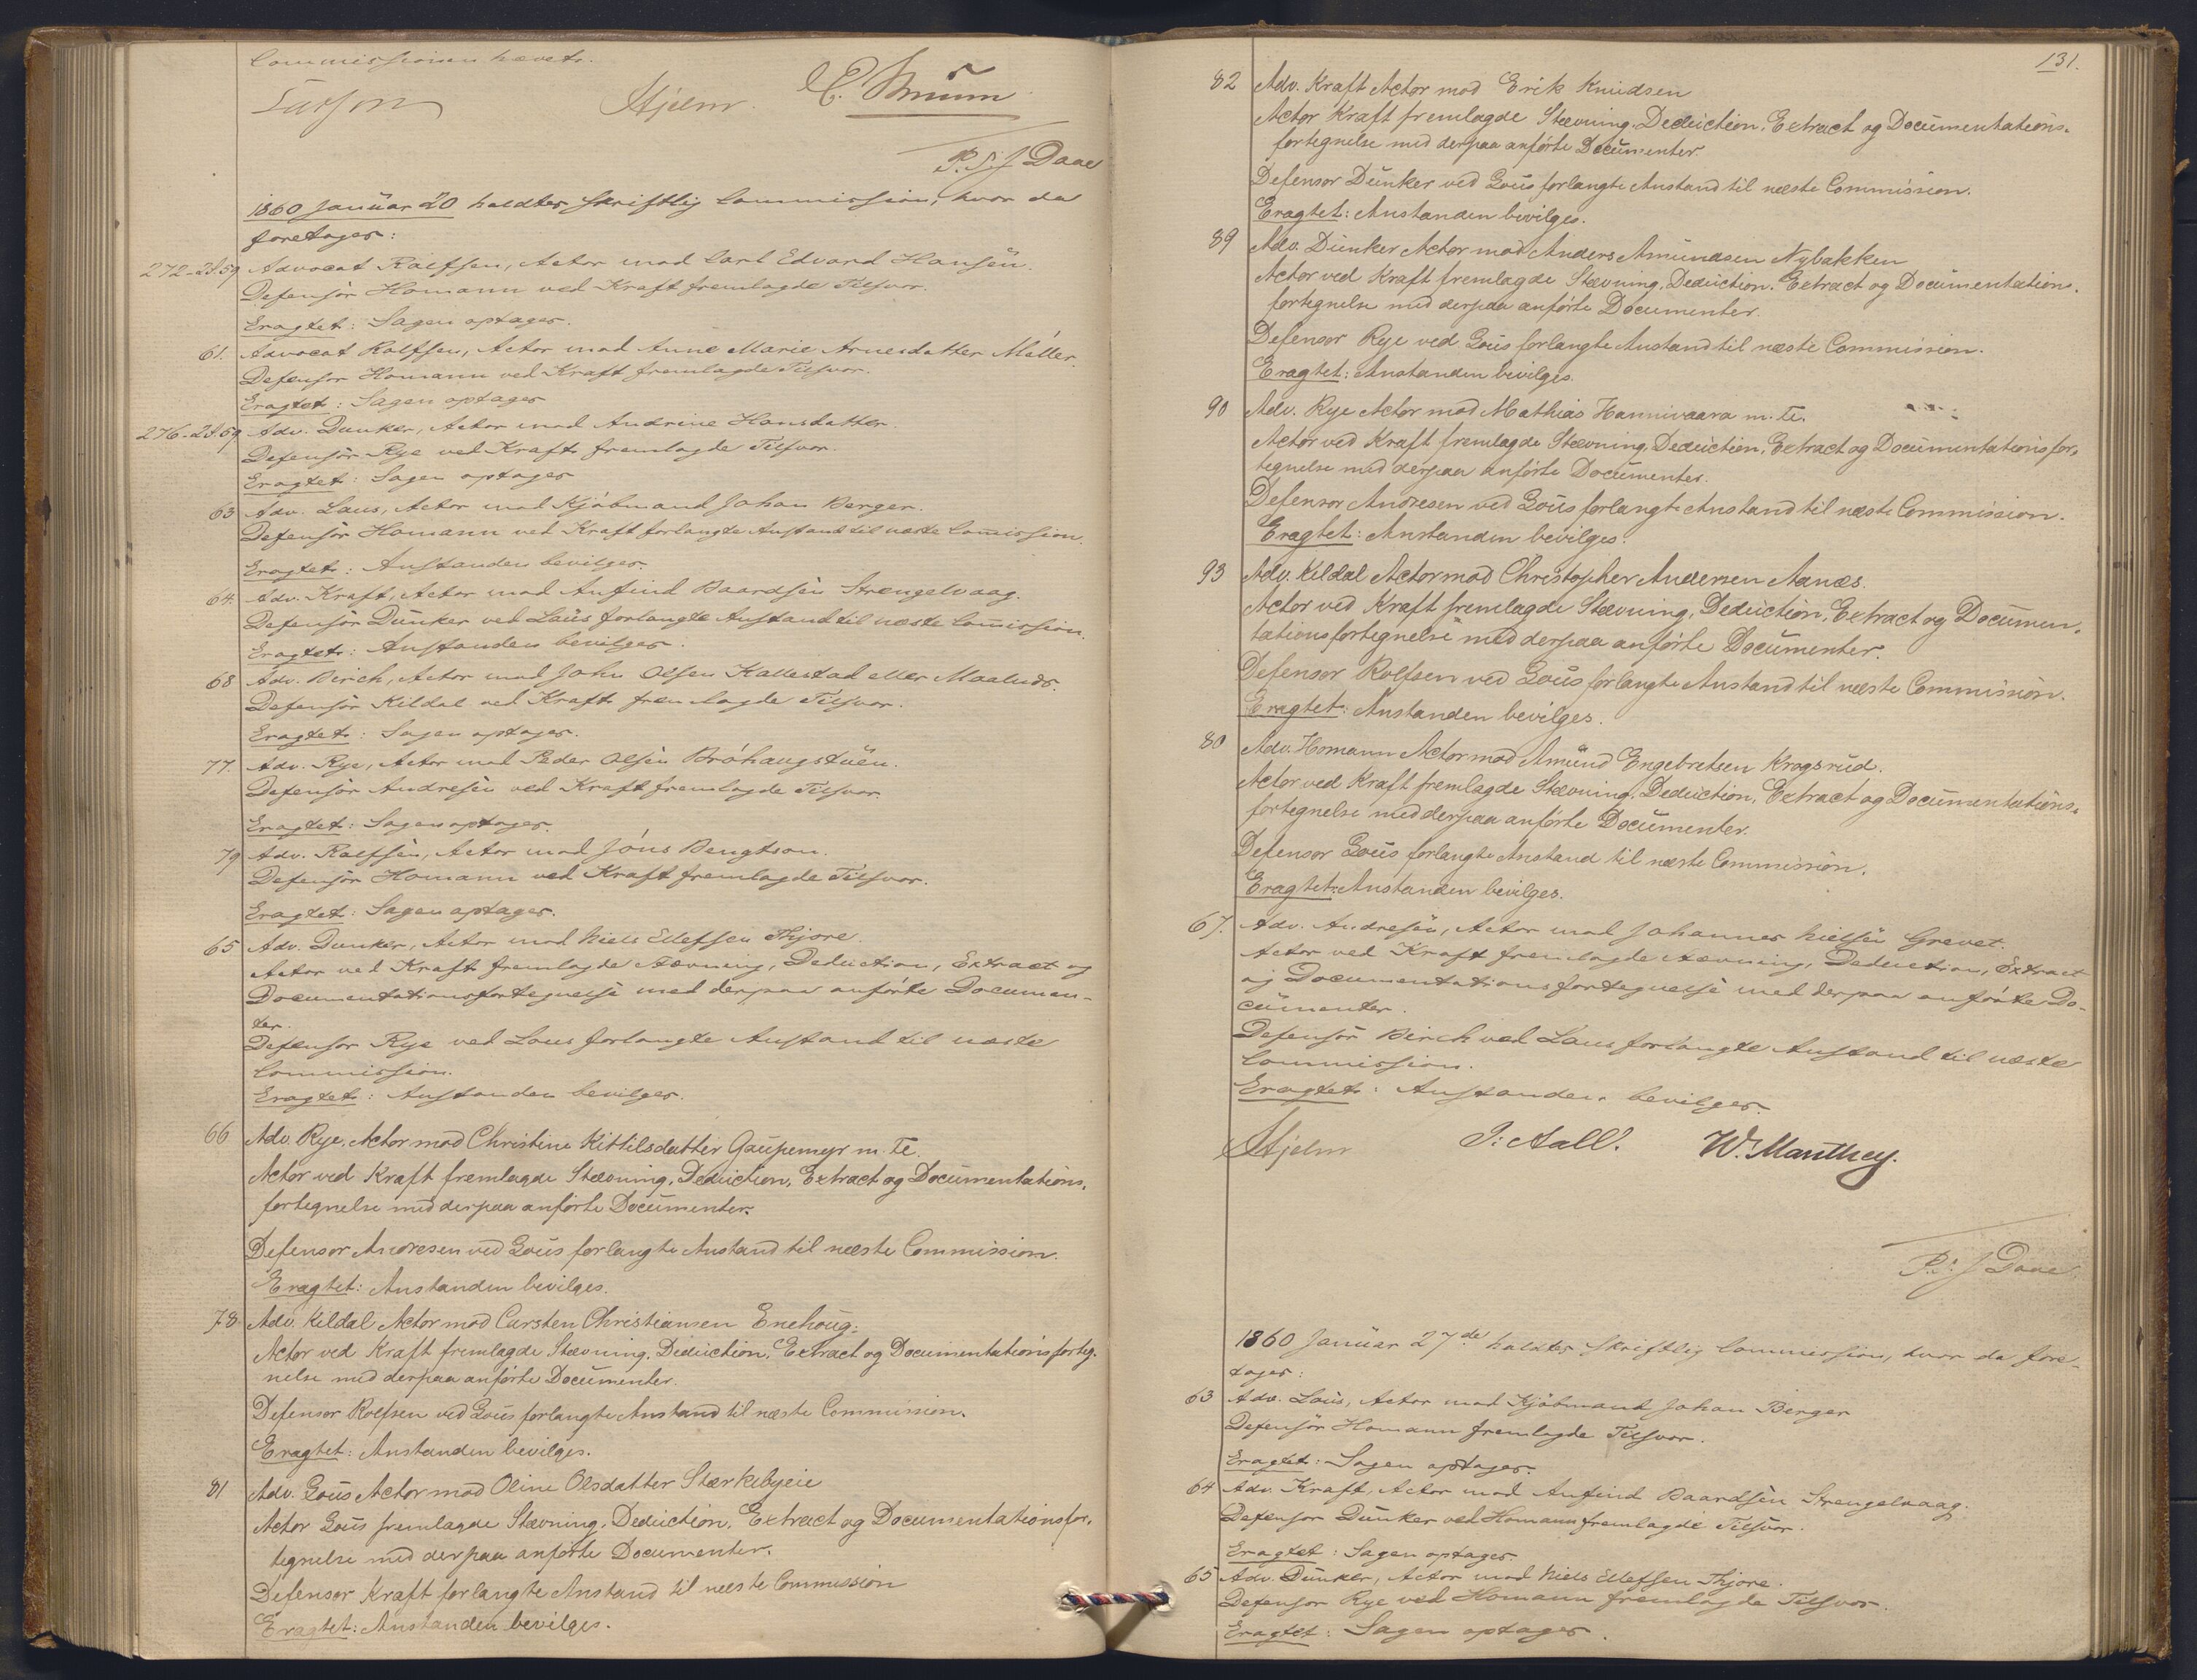 Commissionen hævet.
Hjelm. E. Mrium
P. S. J Daae
1860 Januar 20 holdtes skriftlig Commission, hvor da
foretages:
272-2d.59 Advocat Rolfsen, Actor mod Carl Edvard Hansen.
Defensor Homann ved Kraft fremlagde Tilsvar.
Eragtet: Sagen optages.
61. Advocat Rolfsen, Actor mod Anne Marie Arnesdatter Møller.
Defensor Homann ved Kraft fremlagde Tilsvar.
Eragtet: Sagen optages
276-2d.59 Adv. Dunker, Actor mod Andrine Hansdatter.
Defensor Rye ved Kraft fremlagde Tilsvar.
Eragtet: Sagen optages
63 Adv. Lous, Actor mod Kjøbmand Johan Berger.
Defensor Homann ved Kraft forlangte Anstand til næste Com̅ission.
Eragtet: Anstanden bevilges.
64. Adv. Kraft, Actor mod Anfind Baardsen Strengelvaag.
Defensor Dunker ved Lous forlangte Anstand til næste Com̅ission.
Eragtet: Anstanden bevilges.
68 Adv. Birch, Actor mod John Olsen Kallestad eller Maalnes.
Defensor Kildal ved Kraft fremlagde Tilsvar.
Eragtet: Sagen optages.
77. Adv. Rye, Actor mod Peder Olsen Bröhaugstuen.
Defensor Andresen ved Kraft fremlagde Tilsvar.
Eragtet: Sagen optages.
79 Adv. Rolfsen, Actor mod Jöns Bengtson.
Defensor Homann ved Kraft fremlagde Tilsvar.
Eragtet: Sagen optages.
65 Adv. Dunker, Actor mod Niels Ellefsen Thjore.
Actor ved Kraft fremlagde Stævning, Deduction, Extract og
Documentationsfortegnelse med derpaa anførte Documen-
ter.
Defensor Rye ved Lous forlangte Anstand til næste
Commission.
Eragtet: Anstanden bevilges.
66 Adv. Rye, Actor mod Christine Kittilsdatter Gaupemyr m. Fl.
Actor ved Kraft fremlagde Stævning, Deduction, Extract og Documentations-
fortegnelse med derpaa anførte Documenter.
Defensor Andresen ved Lous forlangte Anstand til næste Commission.
Eragtet: Anstanden bevilges.
78 Adv. Kildal Actor mod Carsten Christiansen Enehoug.
Actor ved Kraft fremlagde Stævning, Deduction, Extract og Documentationsforteg-
nelse med derpaa anførte Documenter.
Defensor Rolfsen ved Lous forlangte Anstand til næste Commission.
Eragtet: Anstanden bevilges.
81 Adv. Lous Actor mod Oline Olsdatter Stærkebyeie
Actor Lous fremlagde Stævning, Deduction, Extract og Documentationsfor-
tegnelse med derpaa anførte Documenter.
Defensor Kraft forlangte Anstand til næste Commission
Eragtet: Anstanden bevilges.
131.
82 Adv. Kraft Actor mod Erik Knudsen
Actor Kraft fremlagde Stævning, Deduction, Extract og Documentations-
fortegnelse med derpaa anførte Documenter.
Defensor Dunker ved Lous forlangte Anstand til næste Commission.
Eragtet: Anstanden bevilges.
89 Adv. Dunker Actor mod Anders Amundsen Nybakken
Actor ved Kraft fremlagde Stævning, Deduction, Extract og Documentations-
fortegnelse med derpaa anførte Documenter.
Defensor Rye ved Lous forlangte Anstand til næste Commission.
Eragtet: Anstanden bevilges.
90 Adv. Rye Actor mod Mathias Hannivaara m. Fl.
Actor ved Kraft fremlagde Stævning, Deduction, Extract og Documentationsfor-
tegnelse med derpaa anførte Documenter.
Defensor Andresen ved Lous forlangte Anstand til næste Commission.
Eragtet: Anstanden bevilges.
93 Adv. Kildal Actor mod Christopher Andersen Aanæs.
Actor ved Kraft fremlagde Stævning, Deduction, Extract og Documen-
tationsfortegnelse med derpaa anførte Documenter.
Defensor Rolfsen ved Lous forlangte Anstand til næste Commission.
Eragtet: Anstanden bevilges.
80 Adv. Homann Actor mod Amund Engebretsen Krogsrud.
Actor ved Kraft fremlagde Stævning, Deduction, Extract og Documentations-
fortegnelse med derpaa anførte Documenter.
Defensor Lous forlangte Anstand til næste Commission.
Eragtet: Anstanden bevilges.
67. Adv. Andresen, Actor mod Johannes Nielsen Grevet.
Actor ved Kraft fremlagde Stævning, Deduction, Extract
og Documentationsfortegnelse med derpaa anførte Do-
cumenter.
Defensor Birch ved Lous forlangte Anstand til næste
Commission.
Eragtet: Anstanden bevilges.
Hjelm J. Aall. W. Manthey.
P. S. J Daae
1860 Januar 27de holdtes skriftlig Commission, hvor da fore-
tages:
63 Adv. Lous, Actor mod Kjøbmand Johan Berger
Defensor Homann fremlagde Tilsvar.
Eragtet: Sagen optages.
64 Adv. Kraft, Actor mod Anfind Baardsen Strengelvaag.
Defensor Dunker ved Homann fremlagde Tilsvar.
Eragtet: Sagen optages.
65 Adv. Dunker, Actor mod Niels Ellefsen Thjore.
Defensor Rye ved Homann fremlagde Tilsvar.
Eragtet: Sagen optages.